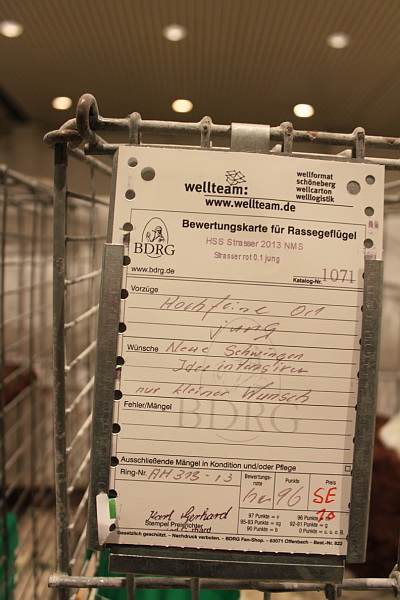 wellteam:
wellformat
schöneberg
wellcarton
welllogistik
www.wellteam.de
BDRG
Bewertungskarte für Rassegeflügel
HSS Strasser 2013 NMS
Strasser rot 0,1 jung
www.bdrg.de
Katalog-Nr. 1071
Vorzüge
Hochfeine
jung
Wünsche Neue Schwingen
intensiver
nur kleiner Wunsch
Fehler/Mängel
BDRG
Ausschließende Mängel in Kondition und/oder Pflege
Ring-Nr. AH 313-13
Bewertungs-
note
Punkte
Preis
hv 96 SE
20
Karl Gerhard
Stempel Preisrichter
97 Punkte = v
96 Punkte = hv
95-93 Punkte = sg
92-91 Punkte = g
90 Punkte = b
0 Punkte = u, o. B.
Gesetzlich geschützt. - Nachdruck verboten. - BDRG Fan-Shop. - 63071 Offenbach - Best.-Nr. 822